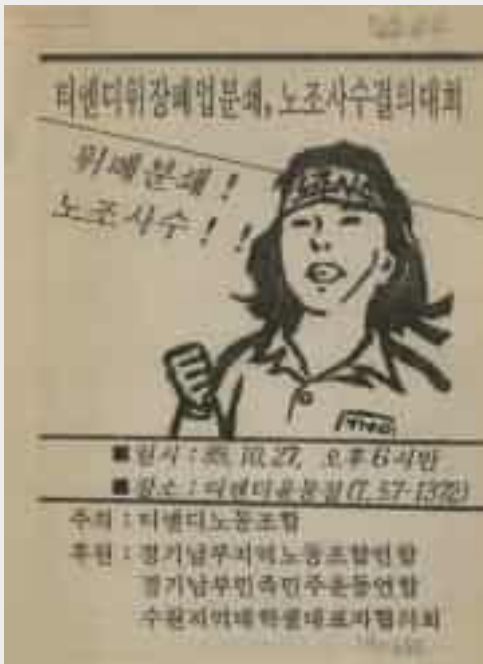 티엔디위장폐업분쇄, 노조사수결의대회
위폐분쇄!
노조사수!!
노조사수
■ 일시 : 89, 10, 27, 오후 6시반
■ 장소 : 티엔디운동장 (T, 57-1372)
주최 : 티엔디노동조합
후원 : 경기남부지역노동조합연합
경기남부민족민주운동연합
수원지역대학생대표자협의회